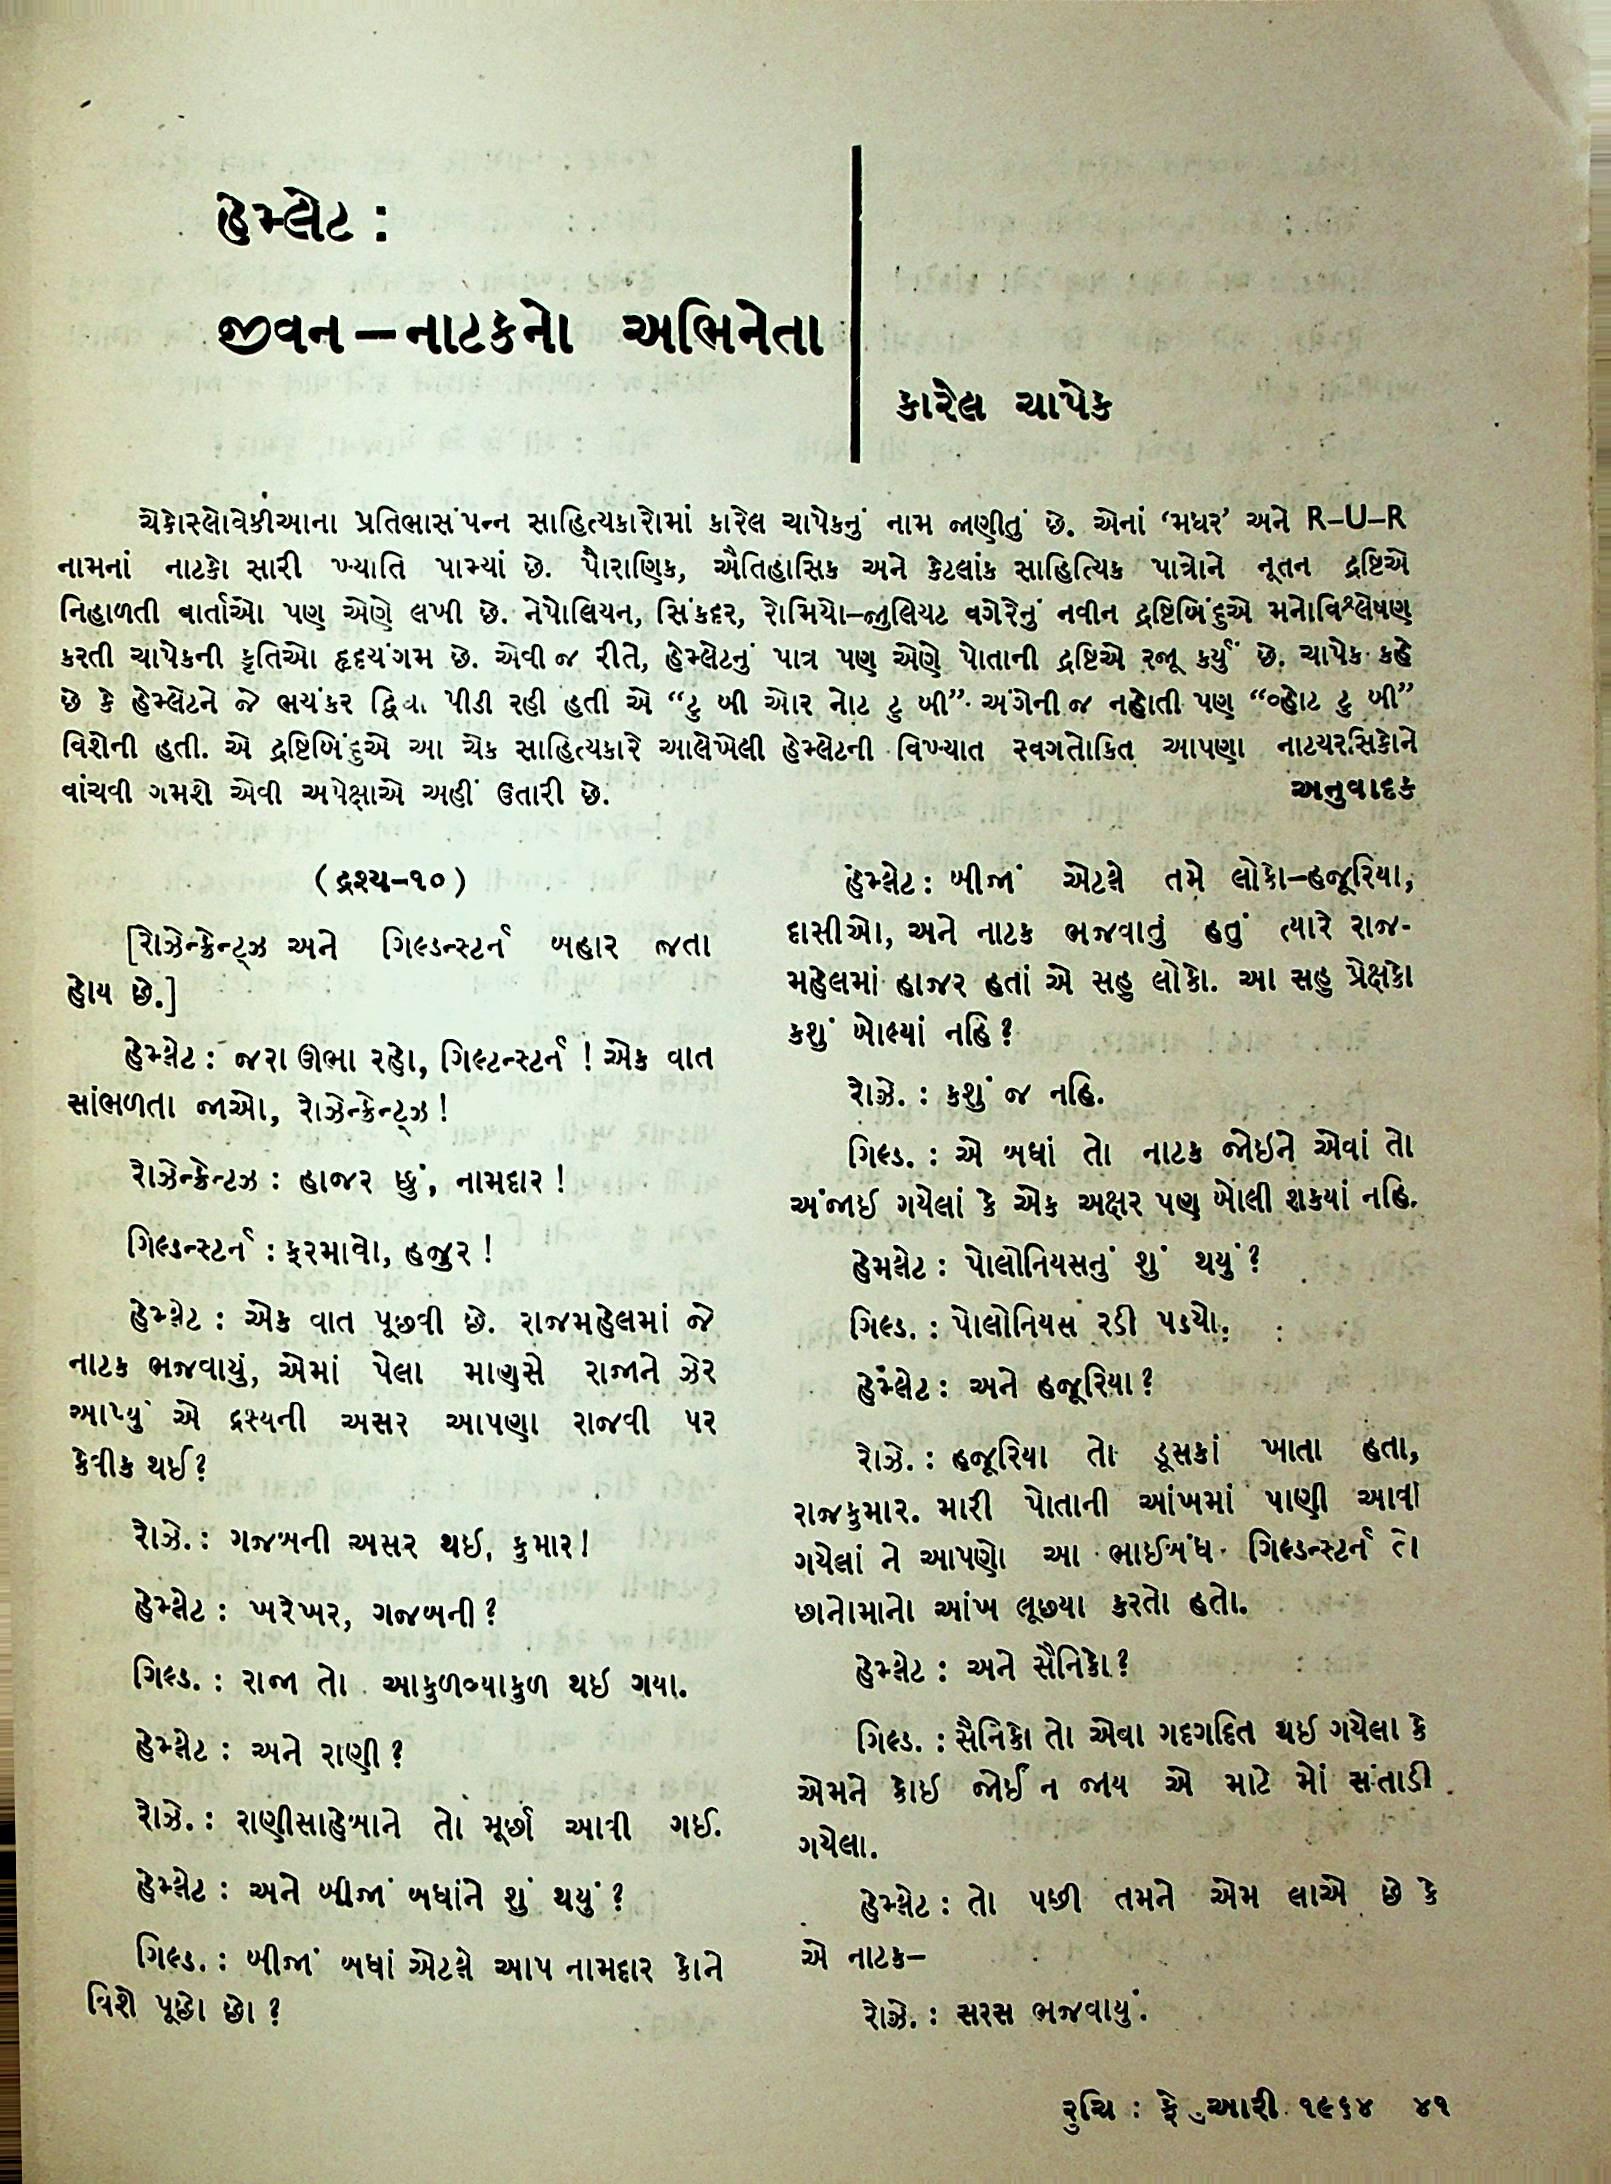 હેમ્લેટ :
જીવન – નાટકનો અભિનેતા
કારેલ ચાપેક
ચેકોસ્લોવેકીઆના પ્રતિભાસંપન્ન સાહિત્યકારોમાં કારેલ ચાપેકનું નામ જાણીતું છે. એનાં ‘મધર’ અને R–U–R
નામનાં નાટકો સારી ખ્યાતિ પામ્યાં છે. પૌરાણિક, ઐતિહાસિક અને કેટલાંક સાહિત્યિક પાત્રોને નૂતન દ્રષ્ટિએ
નિહાળતી વાર્તાઓ પણ એણે લખી છે. નેપોલિયન, સિંકદર, રોમિયો–જુલિયટ વગેરેનું નવીન દ્રષ્ટિબિંદુએ મનોવિશ્લેષણ
કરતી ચાપેકની કૃતિઓ હૃદયંગમ છે. એવી જ રીતે, હેમ્લેટનું પાત્ર પણ એણે પોતાની દ્રષ્ટિએ રજૂ કર્યું છે. ચાપેક કહે
છે કે હેમ્લેટને જે ભયંકર દ્વિધા પીડી રહી હતી એ “ટુ બી ઓર નોટ ટુ બી” અંગેની જ નહોતી પણ “વ્હોટ ટુ બી”
વિશેની હતી. એ દ્રષ્ટિબિંદુએ આ ચેક સાહિત્યકારે આલેખેલી હેમ્લેટની વિખ્યાત સ્વગતોકિત આપણા નાટયરસિકોને
વાંચવી ગમશે એવી અપેક્ષાએ અહીં ઉતારી છે. અનુવાદક
( દ્રશ્ય–૧૦ )
[રોઝેન્ક્રેન્ટ્ઝ અને ગિલ્ડન્સ્ટર્ન બહાર જતા
હોય છે.]
હેમ્લેટ : જરા ઊભા રહો, ગિલ્ટન્સ્ટર્ન ! એક વાત
સાંભળતા જાઓ, રોઝેન્ક્રેન્ટ્ઝ !
રોઝેન્ક્રેન્ટઝ : હાજર છું, નામદાર !
ગિલ્ડન્સ્ટર્ન : ફરમાવો, હજુર !
હેમ્લેટ : એક વાત પૂછવી છે. રાજમહેલમાં જે
નાટક ભજવાયું, એમાં પેલા માણસે રાજાને ઝેર
આપ્યું એ દ્રશ્યની અસર આપણા રાજવી પર
કેવીક થઈ ?
રોઝે. : ગજબની અસર થઈ, કુમાર !
હેમ્લેટ : ખરેખર, ગજબની ?
ગિલ્ડ. : રાજા તો આકુળવ્યાકુળ થઈ ગયા.
હેમ્લેટ : અને રાણી ?
રોઝે. : રાણીસાહેબાને તો મૂર્છા આવી ગઈ.
હેમ્લેટ : અને બીજાં બધાંને શું થયું ?
ગિલ્ડ. : બીજાં બધાં એટલે આપ નામદાર કોને
વિશે પૂછો છો ?
હેમ્લેટ : બીજાં એટલે તમે લોકો–હજૂરિયા,
દાસીઓ, અને નાટક ભજવાતું હતું ત્યારે રાજ-
મહેલમાં હાજર હતાં એ સહુ લોકો. આ સહુ પ્રેક્ષકો
કશું બોલ્યાં નહિ ?
રોઝે. : કશું જ નહિ.
ગિલ્ડ. : એ બધાં તો નાટક જોઇને એવાં તો
અંજાઈ ગયેલાં કે એક અક્ષર પણ બોલી શકયાં નહિ.
હેમલેટ : પોલોનિયસનું શું થયું ?
ગિલ્ડ. : પોલોનિયસ રડી પડયો.
હેમ્લેટ : અને હજૂરિયા ?
રોઝે. : હજૂરિયા તો ડૂસકાં ખાતા હતા,
રાજકુમાર. મારી પોતાની આંખમાં પાણી આવી
ગયેલાં ને આપણો આ ભાઈબંધ ગિલ્ડન્સ્ટર્ન તો
છાનોમાનો આંખ લૂછયા કરતો હતો.
હેમ્લેટ : અને સૈનિકો ?
ગિલ્ડ. : સૈનિકો તો એવા ગદગદિત થઈ ગયેલા કે
એમને કોઇ જોઈ ન જાય એ માટે મોં સંતાડી
ગયેલા.
હેમ્લેટ : તો પછી તમને એમ લાએ છે કે
એ નાટક–
રોઝે. : સરસ ભજવાયું.
રુચિ : ૧૯૬૪ ૪૧